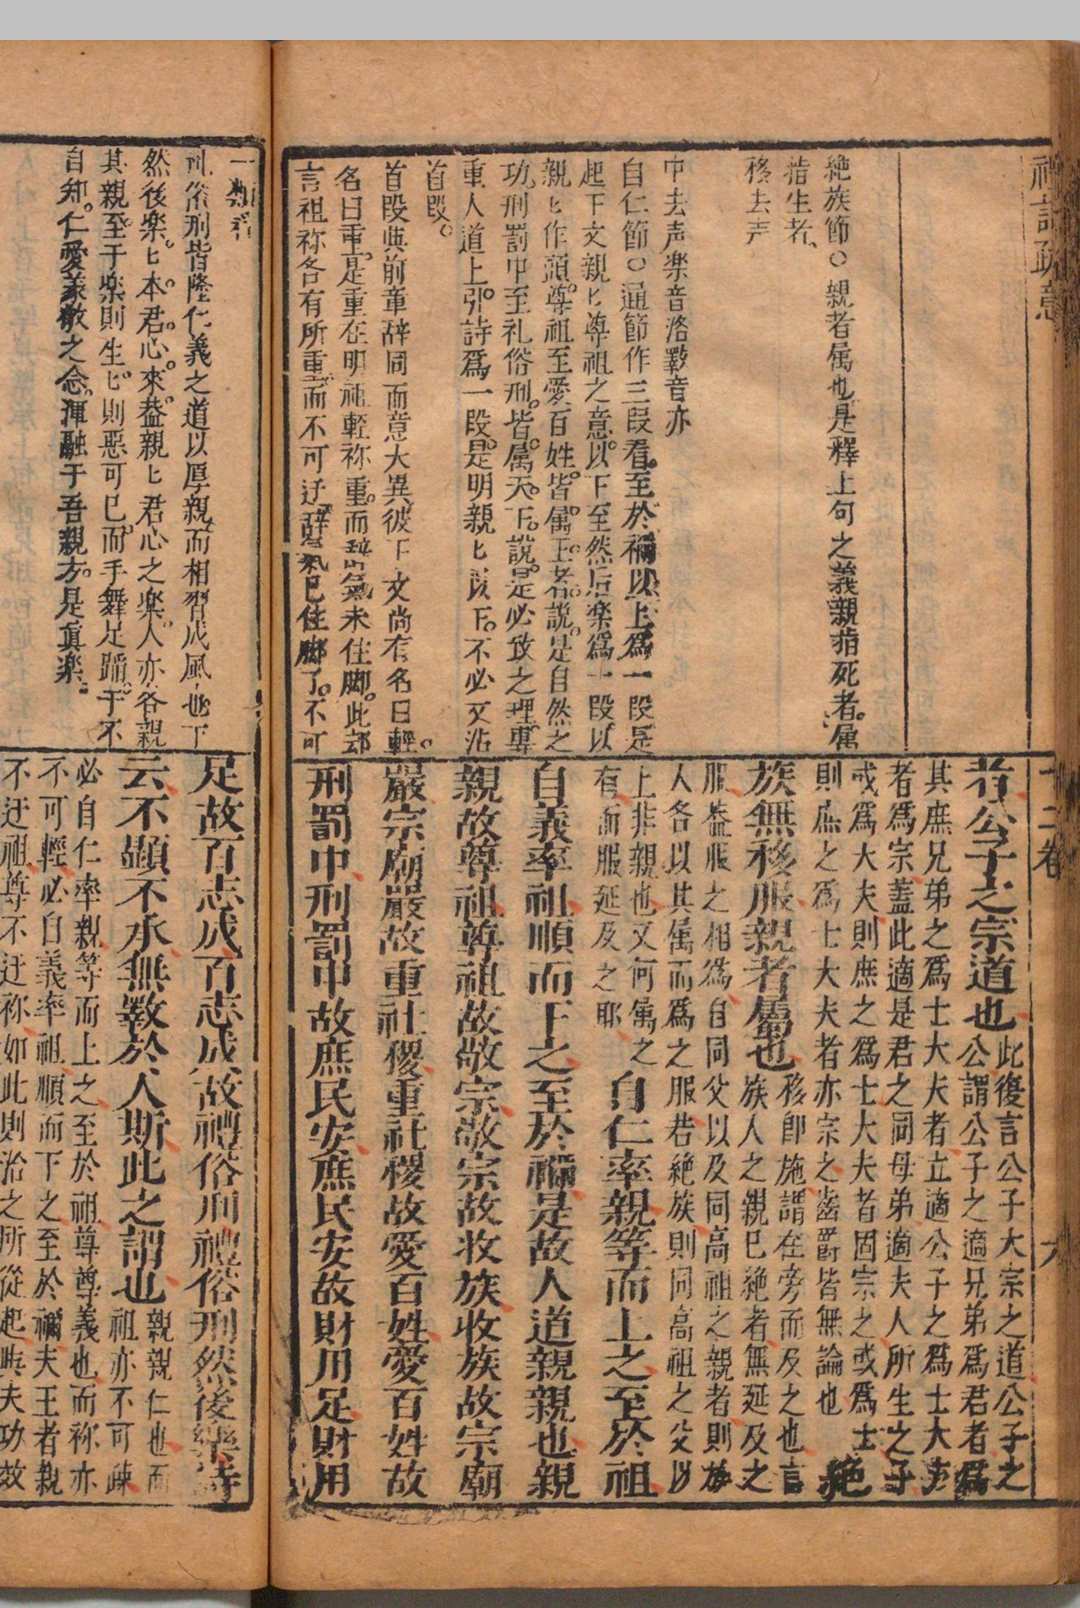 禮記疏意
十二卷
六
絶族節○親者属也是釋上句之義親指死者属
指生者
移去声
中去声楽音洛斁音亦
自仁節○通節作三段看至於禰以上為一段是
起下文親匕尊祖之意以下至然后楽為一段以
親匕作頭尊祖至愛百姓皆属王者說是自然之
功刑罰中至礼俗刑皆属天下說是必致之理專
重人道上引詩爲一段是明親匕以下不必又沾
首段
首段與前章辞同而意大異彼下文尚有名曰輕
名曰重是重在明祖輕祢重而辞氣未住脚此却
言祖祢各有所重而不可迂辞氣已住脚了不可
者公子之宗道也
此復言公子大宗之道公子之
公謂公子之適兄弟爲君者爲
其庶兄弟之爲士大夫者立適公子之爲士大夫
者爲宗蓋此適是君之同母弟適夫人所生之子
或爲大夫則庶之爲士大夫者固宗之或爲士
則庶之爲士大夫者亦宗之齒爵皆無論也
絶
族無移服親者屬也
移卽施謂在旁而及之也言
族人之親已絶者無延及之
服蓋服之相爲自同父以及同高祖之親者則族
人各以其属而爲之服若絶族則同高祖之父以
上非親也又何属之
有而服延及之耶
自仁率親等而上之至於祖
自義率祖順而下之至於禰是故人道親親也親
親故尊祖尊祖故敬宗敬宗故收族收族故宗廟
嚴宗廟嚴故重社稷重社稷故愛百姓愛百姓故
刑罰中刑罰中故庶民安庶民安故財用足財用
一類穪
礼俗刑皆隆仁義之道以厚親而相習成風也下
然後楽匕本君心來蓋親匕君心之楽人亦各親
其親至于楽則生匕則惡可已而手舞足蹈于不
自知仁愛義敬之念渾融于吾親方是眞楽
足故百志成百志成故禮俗刑禮俗刑然後樂詩
云不顯不承無斁於人斯此之謂也
親親仁也而
祖亦不可疎
必自仁率親等而上之至於祖尊尊義也而祢亦
不可輕必自義率祖順而下之至於禰夫王者親
不迂祖尊不迂祢如此則治之所從起與夫功效